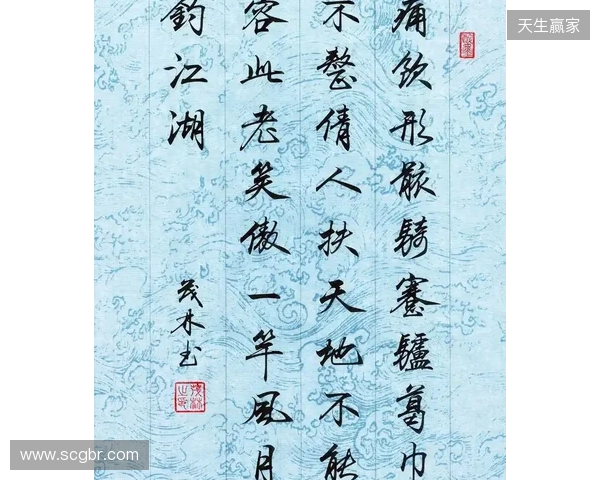 痛飲形骸騎蹇驢葛巾
不整倩人扶天地不能
容此老笑傲一竿風月
釣江湖
茂林书
天生赢家
www.scgbr.com